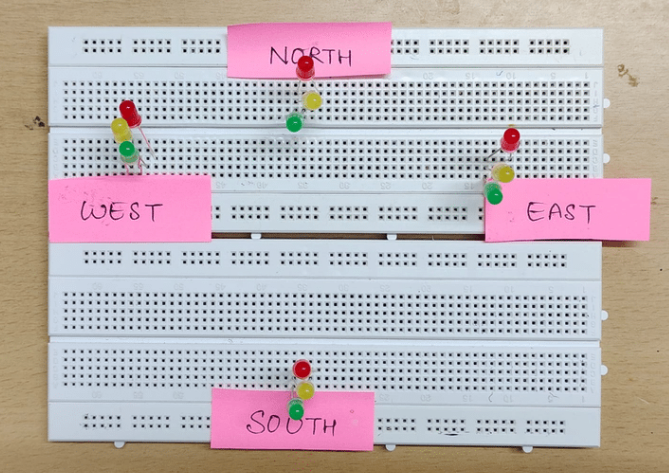 NORTH
WEST
EAST
SOUTH